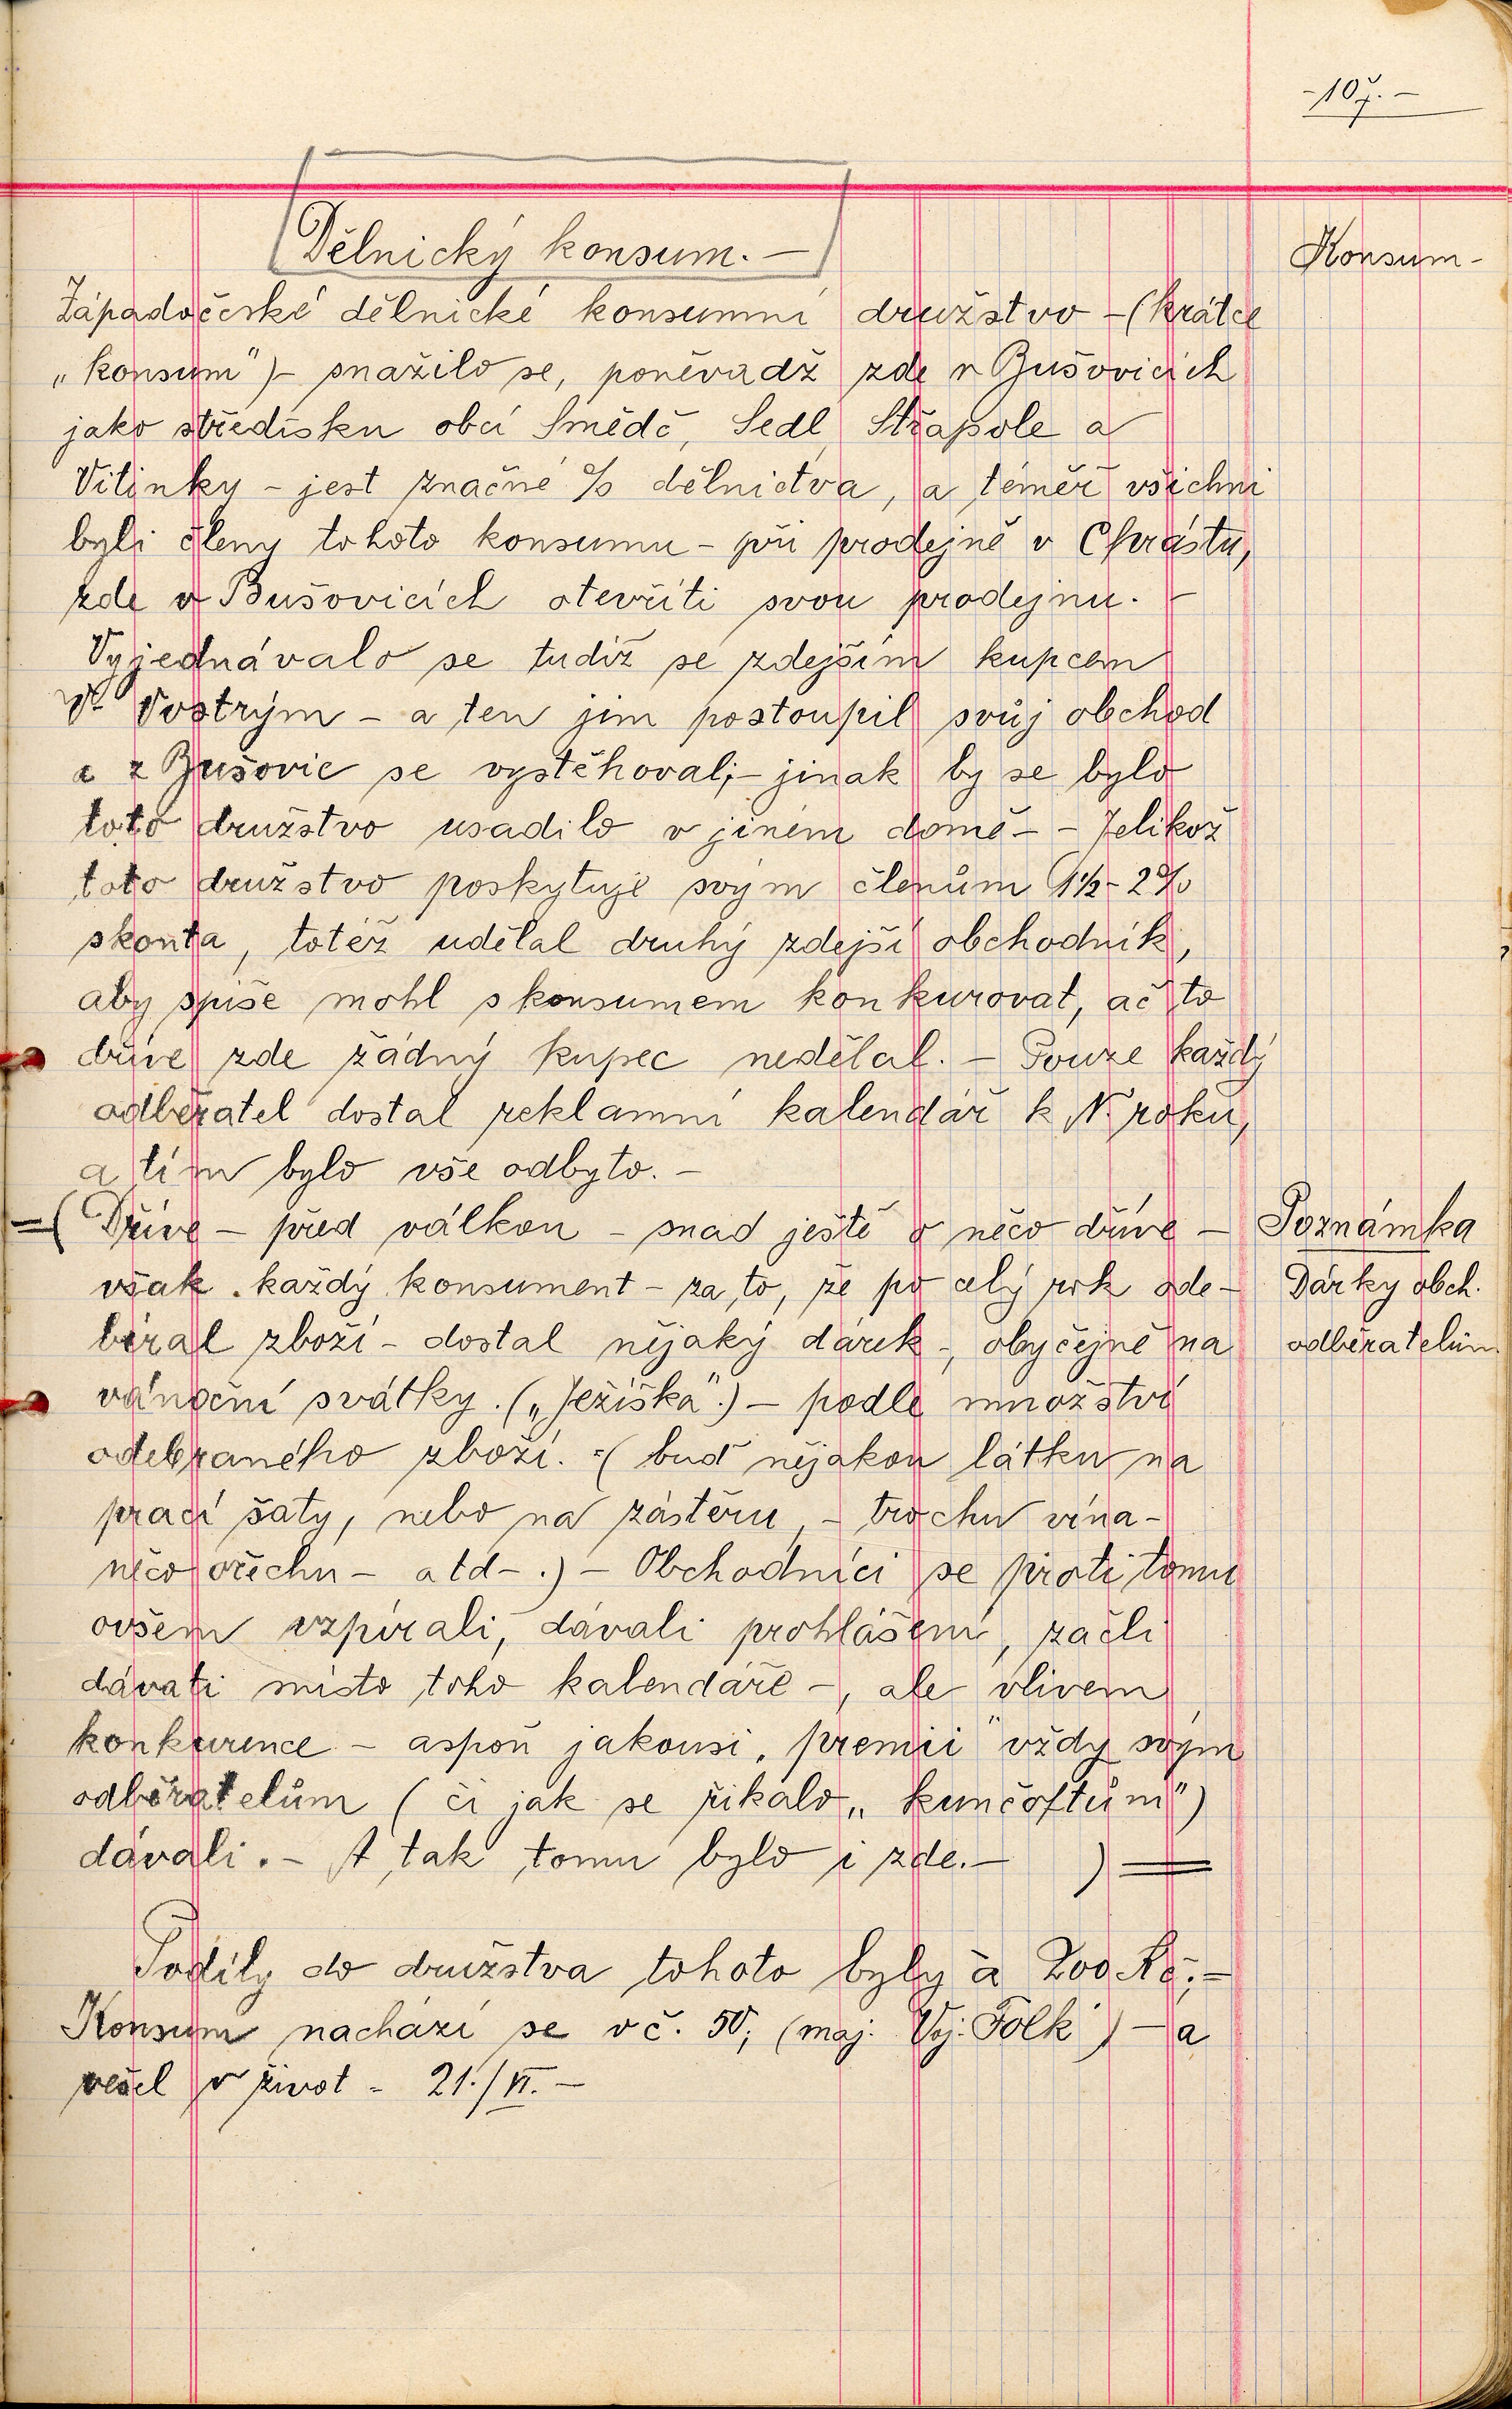 -107.-
Dělnický konsum. -
Konsum -
Západočeské dělnické konsumní družstvo - (krátce
„konsum") - snažilo se, poněvadž zde v Bušovicích
jako středisku obcí Smědč, Sedl, Střapole a
Vitinky - jest značné % dělnictva, a téměř všichni
byli členy tohoto konsumu - při prodejně v Chrástu,
zde v Bušovicích otevříti svou prodejnu. -
Vyjednávalo se tudíž se zdejším kupcem
V. Vostrým - a ten jim postoupil svůj obchod
a z Bušovic se vystěhoval; - jinak by se bylo
toto družstvo usadilo v jiném domě - - Jelikož
toto družstvo poskytuje svým členům 1½ - 2%
skonta, totéž udělal druhý zdejší obchodník,
aby spíše mohl s konsumem konkurovat, ač to
dříve zde žádný kupec nedělal. - Pouze každý
odběratel dostal reklamní kalendář k N. roku,
a tím bylo vše odbyto. -
=( Dříve - před válkou - snad ještě o něco dříve -
Poznámka
však každý konsument - za to, že po celý rok ode-
Dárky obch.
bíral zboží - dostal nějaký dárek -, obyčejně na
odběratelům
vánoční svátky. („Ježíška".) - podle množství
odebraného zboží. =( buď nějakou látku na
prací šaty, nebo na zástěru, - trochu vína -
něco ořechů - atd - .) - Obchodníci se proti tomu
ovšem vzpírali, dávali prohlášení, začli
dávati místo toho kalendáře -, ale vlivem
konkurence - aspoň jakousi „premii" vždy svým
odběratelům ( či jak se říkalo „kunčoftům")
dávali. - A tak tomu bylo i zde. - )=
Podíly do družstva tohoto byly à 200 Kč; -
Konsum nachází se v č. 50; (maj. Voj. Folk) - a
vešel v život - 21./VI. -